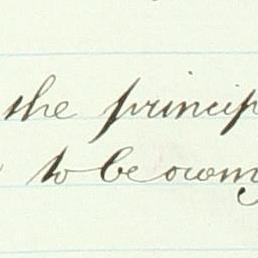 the princip
to be owing